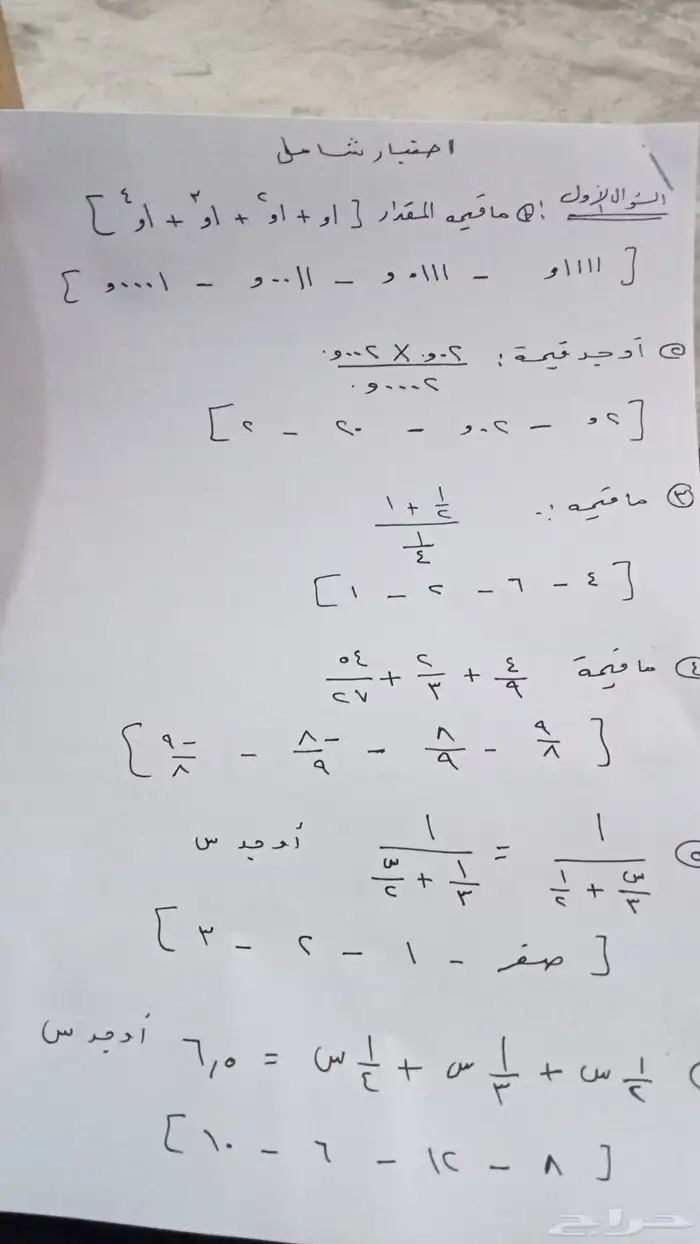 اختبار شامل
السؤال الأول : ① ما قيمه المقدار [ ١و + ١و٢ + ١و٣ + ١و٤ ]
[ ١١١١و - ٠١١١و - ٠٠١١و - ٠٠٠١و ]
② أوجد قيمة : ٠٢و٠ × ٠٠٢و٠ / ٠٠٠٠٢و٠
[ ٢و - ٠٢و - ٢٠ - ٢ ]
③ ما قيمه : ١/٢ + ١ / ١/٤
[ ٤ - ٦ - ٢ - ١ ]
④ ما قيمة ٤/٩ + ٢/٣ + ٥٤/٢٧
[ ٩/٨ - ٨/٩ - -٨/٩ - -٩/٨ ]
⑤ ١ / س/٣ + ١/٢ = ١ / ١/٣ + س/٢ أوجد س
[ صفر - ١ - ٢ - ٣ ]
١/٢ س + ١/٣ س + ١/٤ س = ٦,٥ أوجد س
[ ٨ - ١٢ - ٦ - ١٠ ]
حراج